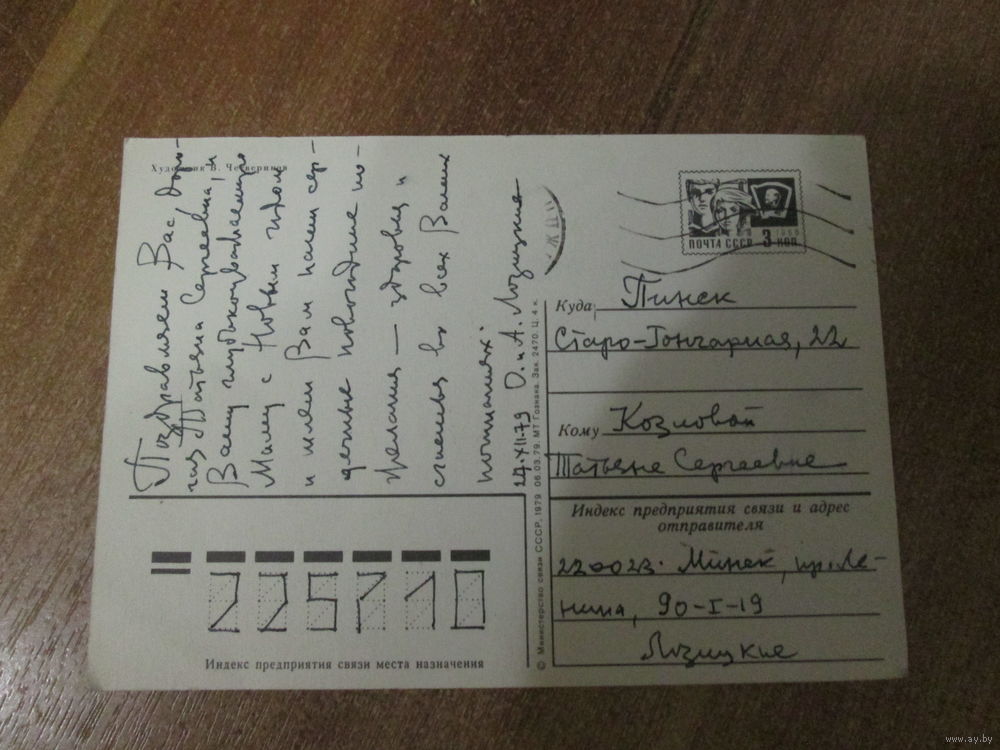 Художник В. Четвериков
Поздравляем Вас, доро-
гая Татьяна Сергеевна, и
Вашу глубокоуважаемую
Маму с Новым годом
и шлем Вам наши сер-
дечные новогодние по-
желания — здоровья и
счастья во всех Ваших
начинаниях.
24.XII.79 О. и А. Лозицкие
ПОЧТА СССР 3 КОП.
1966
Куда Пинск
Старо-Гончарная, 22
Кому Козловой
Татьяне Сергеевне
Индекс предприятия связи и адрес
отправителя
220023. Минск, пр. Ле-
нина, 90-I-19
Лозицкие
225710
Индекс предприятия связи места назначения
© Министерство связи СССР, 1979 06.03.79. МТ Гознака. Зак. 2470. Ц. 4 к.
www.ay.by